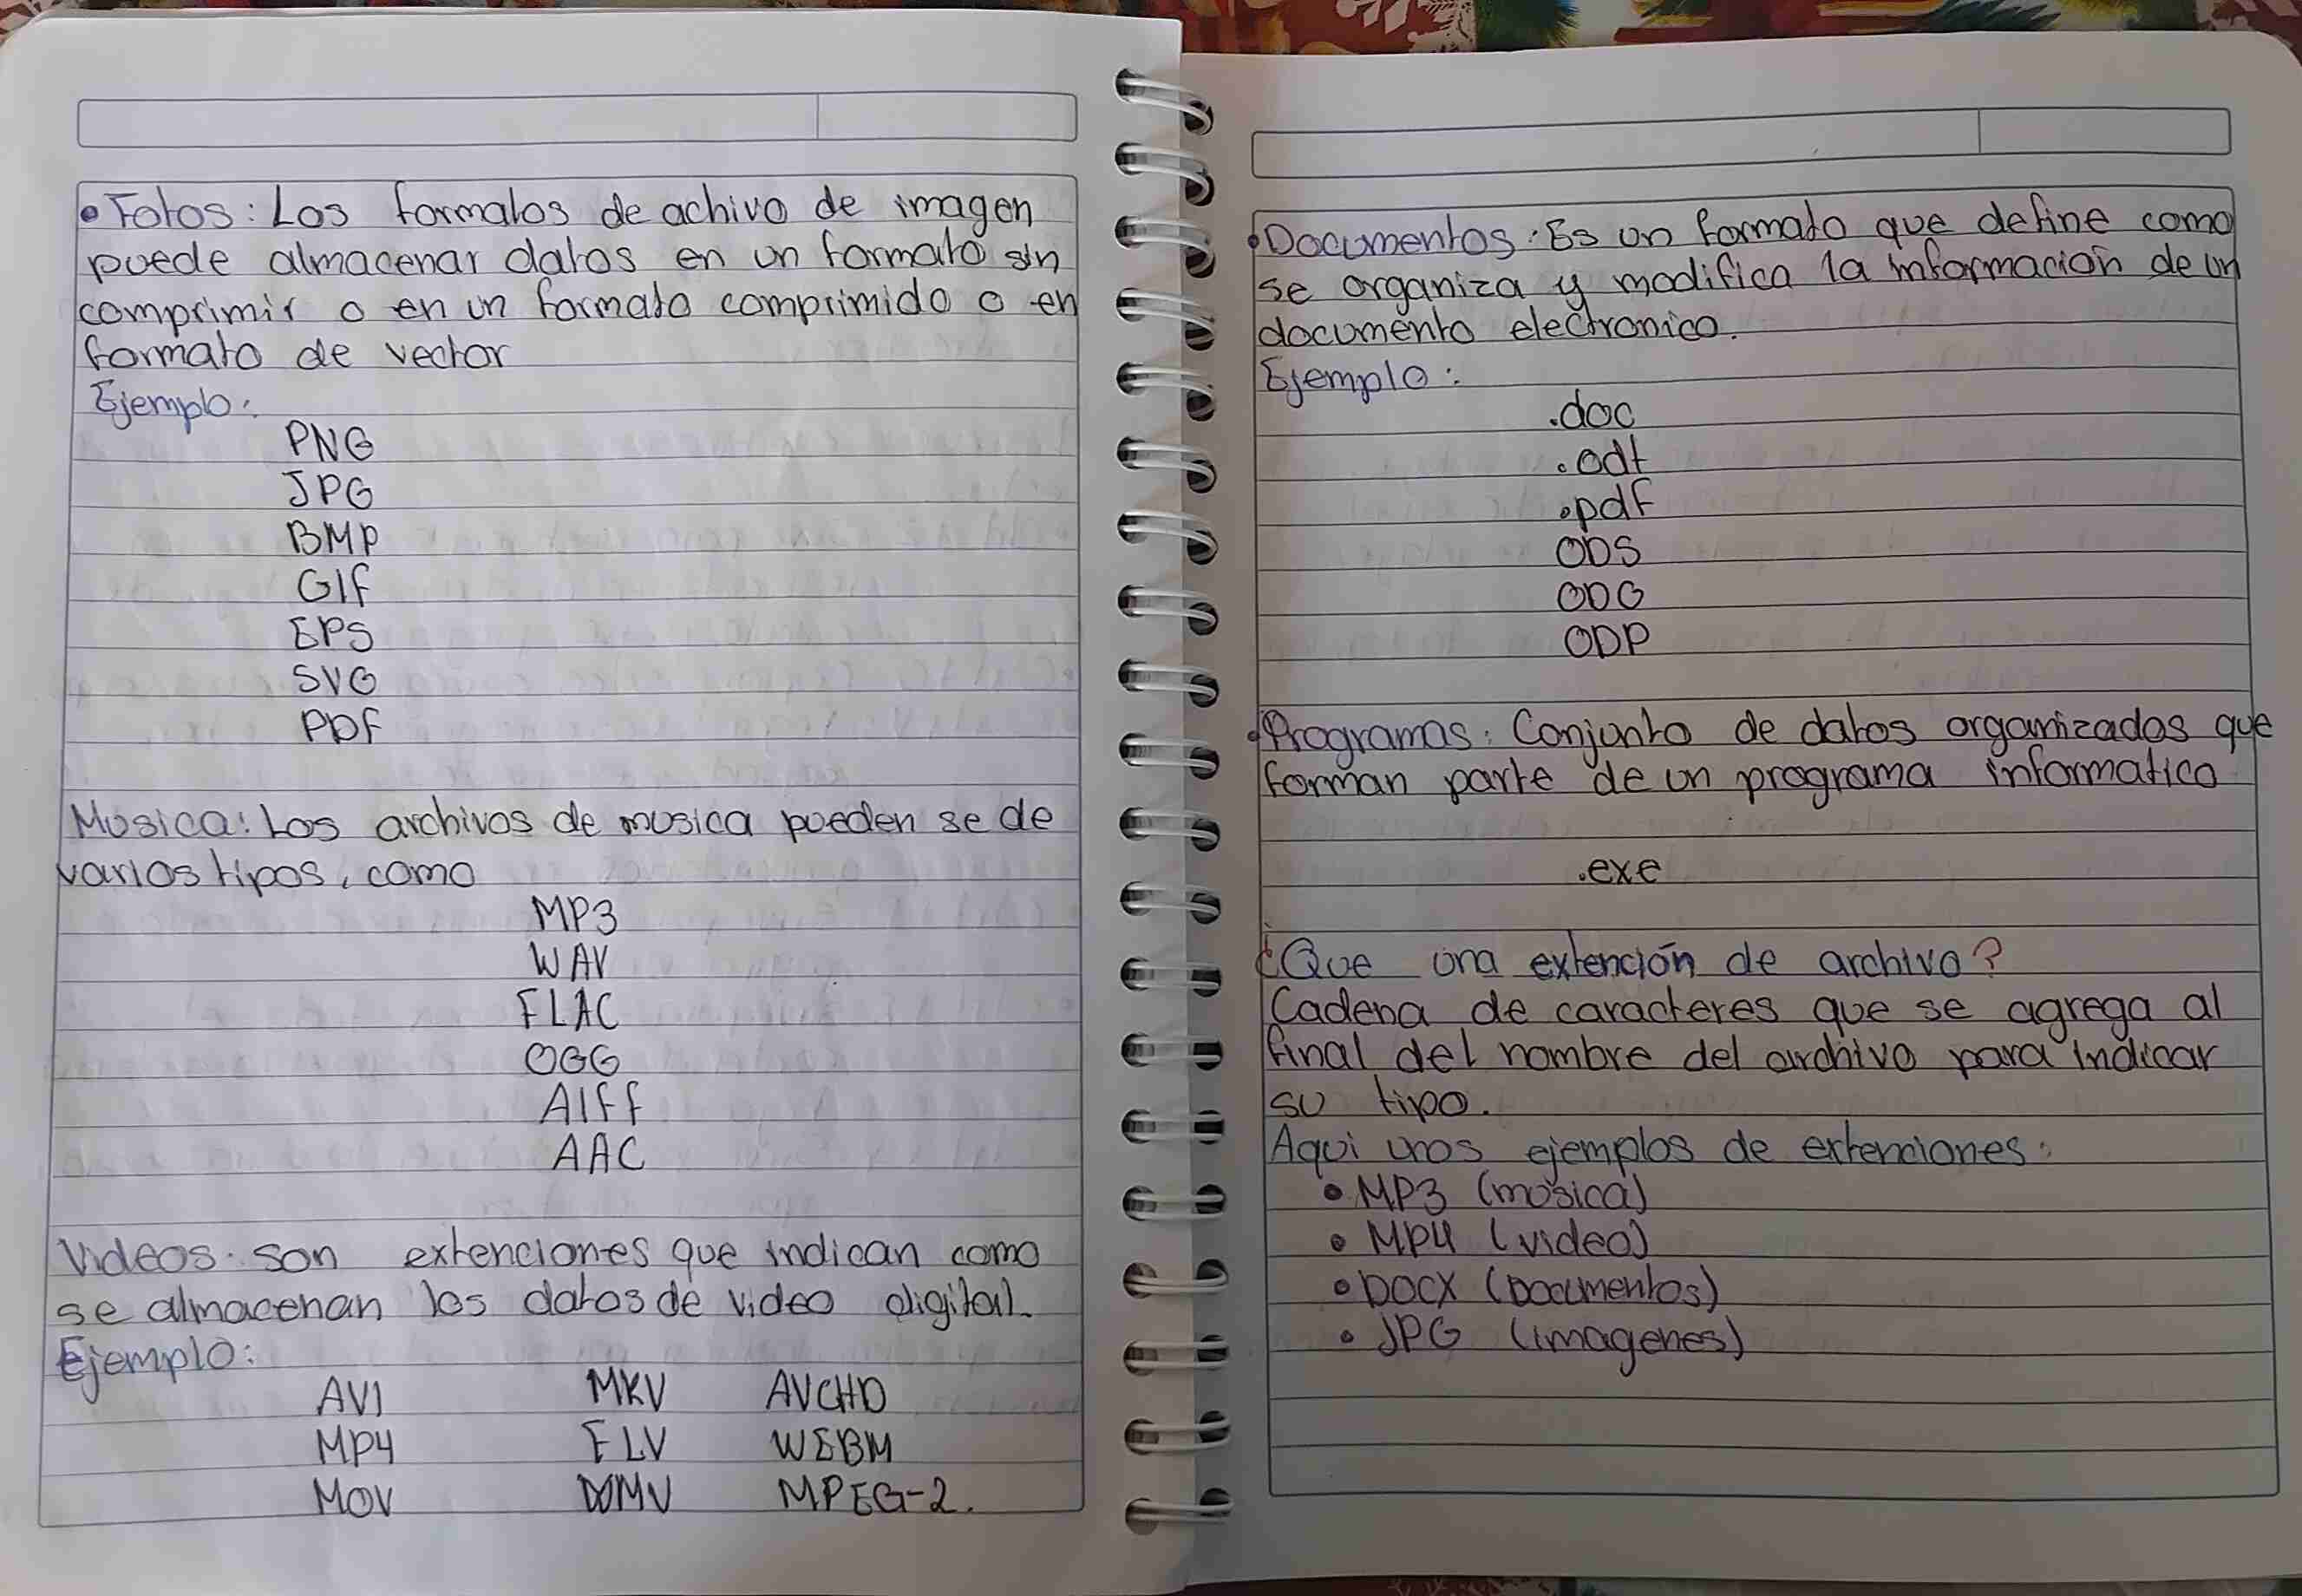 • Fotos: Los formatos de achivo de imagen
puede almacenar datos en un formato sin
comprimir o en un formato comprimido o en
formato de vector
Ejemplo:
PNG
JPG
BMP
GIF
EPS
SVG
PDF
Musica: Los archivos de musica pueden se de
varios tipos, como
MP3
WAV
FLAC
OGG
AIFF
AAC
Videos: son extenciones que indican como
se almacenan los datos de video digital.
Ejemplo:
AVI MKV AVCHD
MP4 FLV WEBM
MOV WMV MPEG-2.
• Documentos: Es un formato que define como
se organiza y modifica la informacion de un
documento electronico.
Ejemplo:
.doc
.odt
.pdf
ODS
ODG
ODP
• Programas: Conjunto de datos organizados que
forman parte de un programa informatico
.exe
¿Que una extención de archivo?
Cadena de caracteres que se agrega al
final del nombre del archivo para indicar
su tipo.
Aqui unos ejemplos de extenciones:
• MP3 (musica)
• MP4 (video)
• DOCX (Documentos)
• JPG (imagenes)